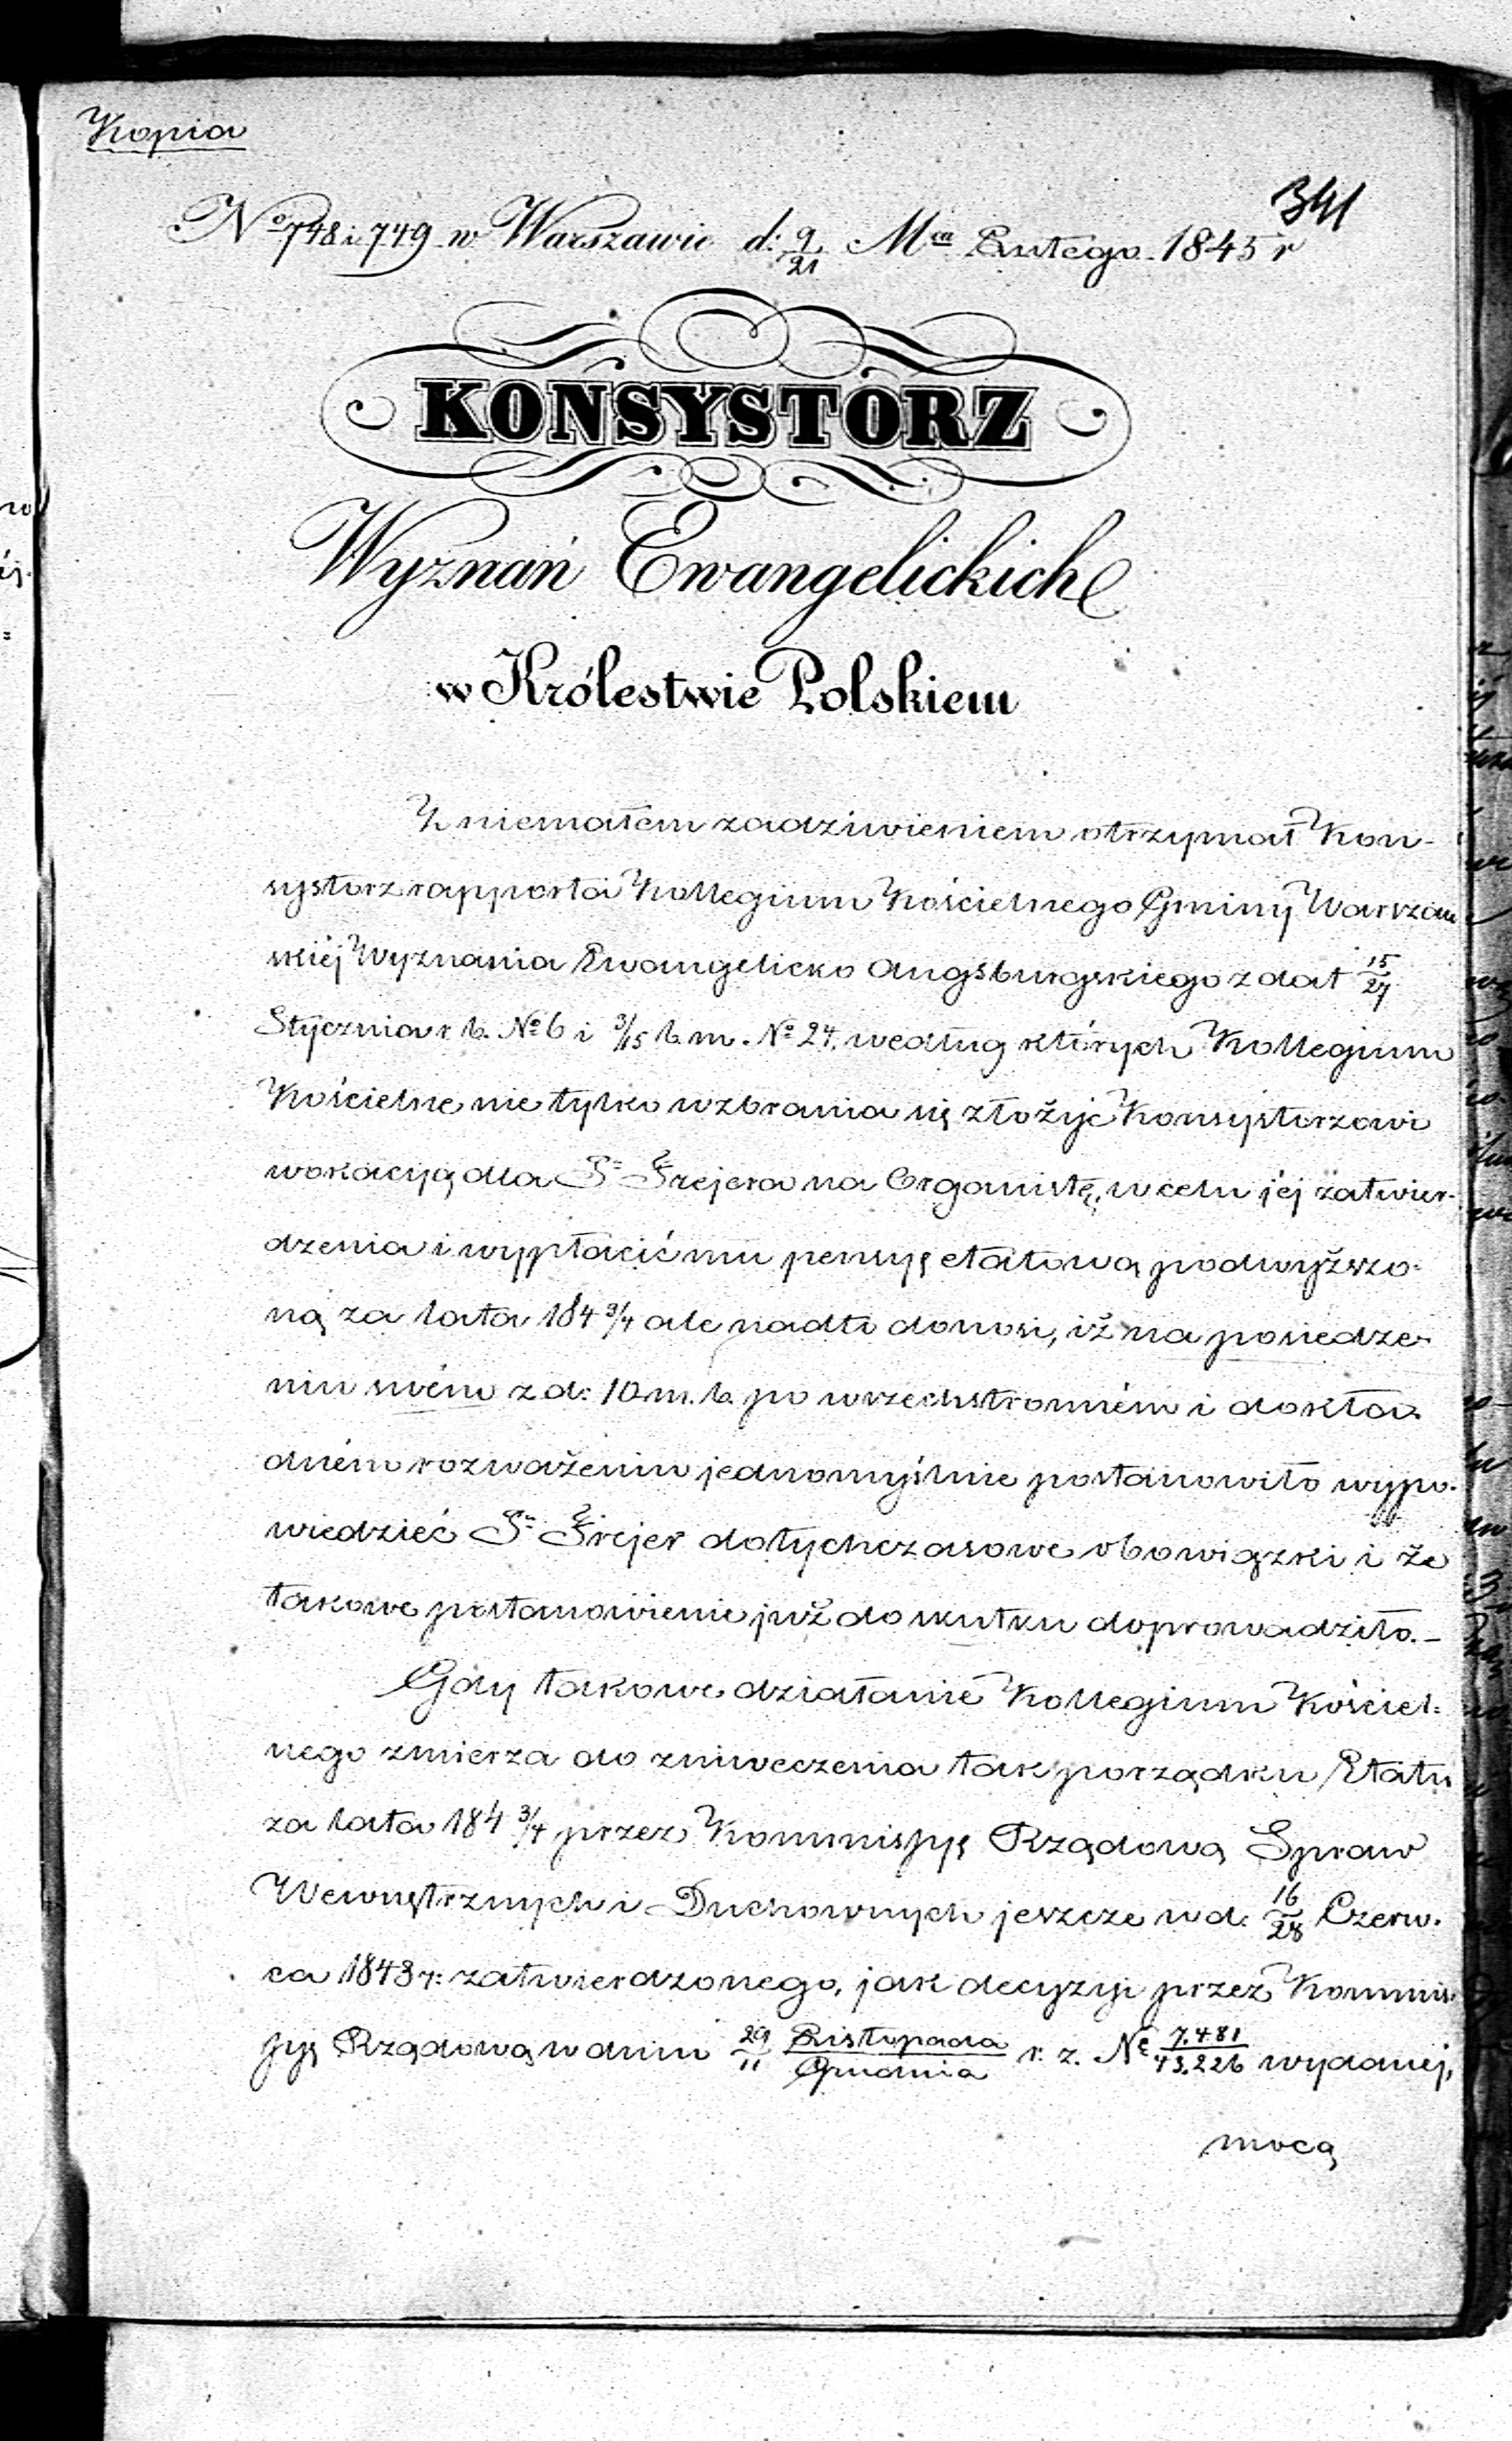 Kopia
341
No 748 i 749 w Warszawie d: 9/21 Mca Lutego 1845 r
KONSYSTORZ
Wyznań Ewangelickich
w Królestwie Polskiem
Z niemałem zadziwieniem otrzymał Kon-
systorz rapporta Kollegium Kościelnego Gminy Warszaw
skiéj Wyznania Ewangelicko Augsburgskiego z dat 15/27
Stycznia r. b. No 6 i 3/15 b. m. No 24. według których Kollegium
Kościelne nie tylko wzbrania się złożyć Konsystorzowi
wokacyą dla Pa Frejera na Organistę, w celu jéj zatwier-
dzenia i wypłacić mu pensyę etatową podwyższo-
ną za lata 184 3/4 ale nadto donosi, iż na posiedze-
niu swém z d: 10 m. b. po wszechstronném i dokła-
dném rozważeniu jednomyślnie postanowiło wypo-
wiedzieć Pu Frejer dotychczasowe obowiązki i że
takowe postanowienie już do skutku doprowadziło.—
Gdy takowe działanie Kollegium Kościel-
nego zmierza do zniweczenia tak porządku Etatu
za lata 184 3/4 przez Kommissyę Rządową Spraw
Wewnętrznych i Duchownych jeszcze w d: 16/28 Czerw-
ca 1843 r: zatwierdzonego, jak decyzyi przez Kommis-
syę Rządową w dniu 29/11 Listopada/Grudnia r. z. No 7.481/43.226 wydanej,
mocą